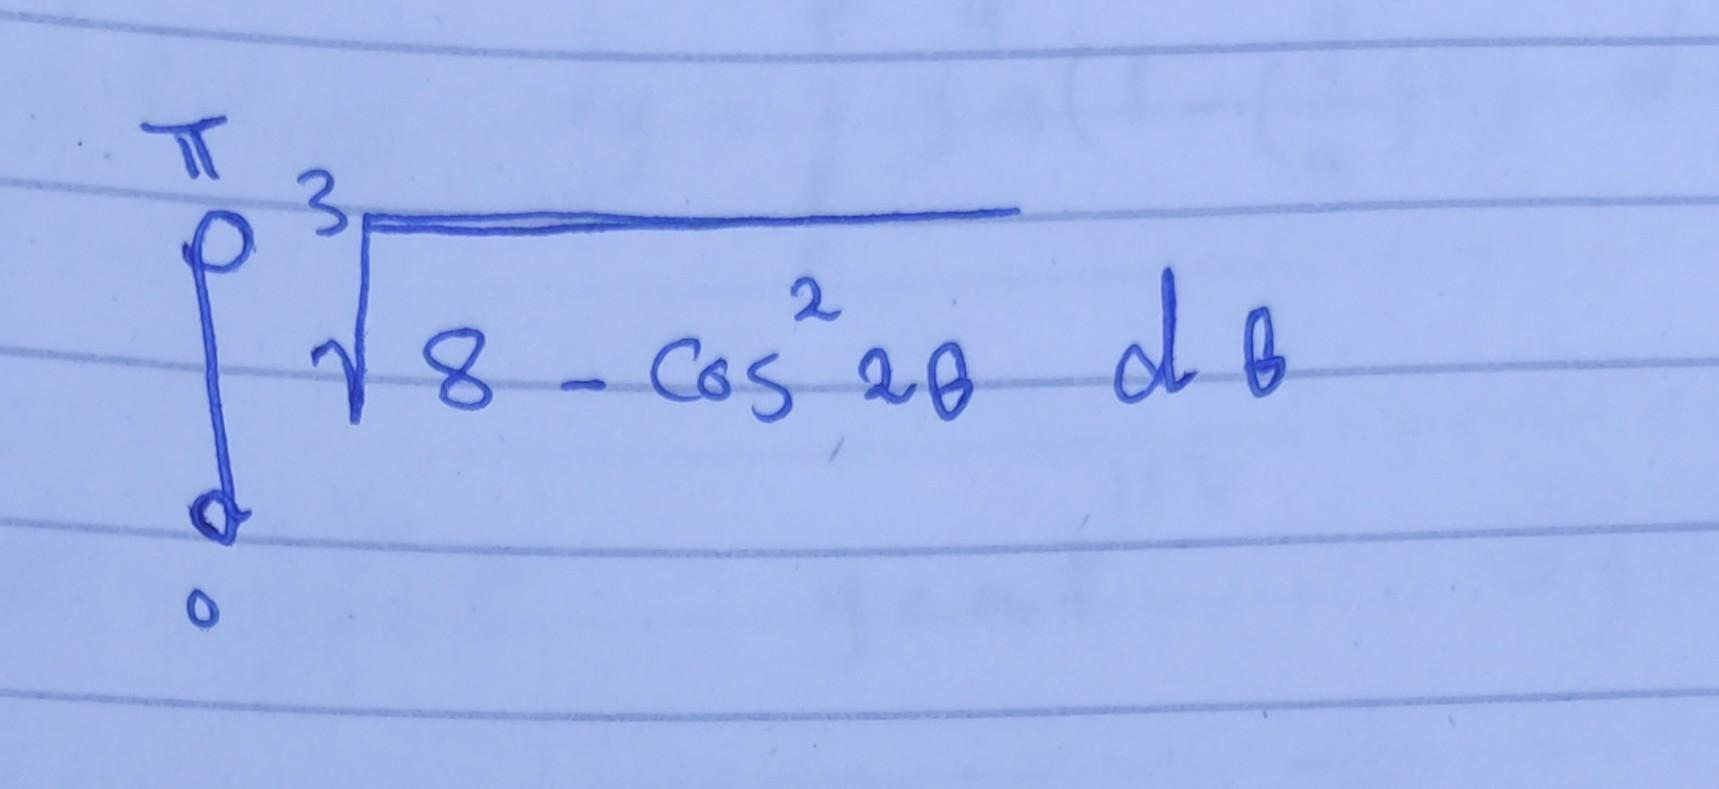 ∫₀^π ∛(8 - cos² 2θ) dθ